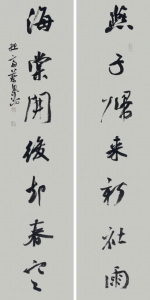 燕子歸来新社雨
海棠開後却春寒